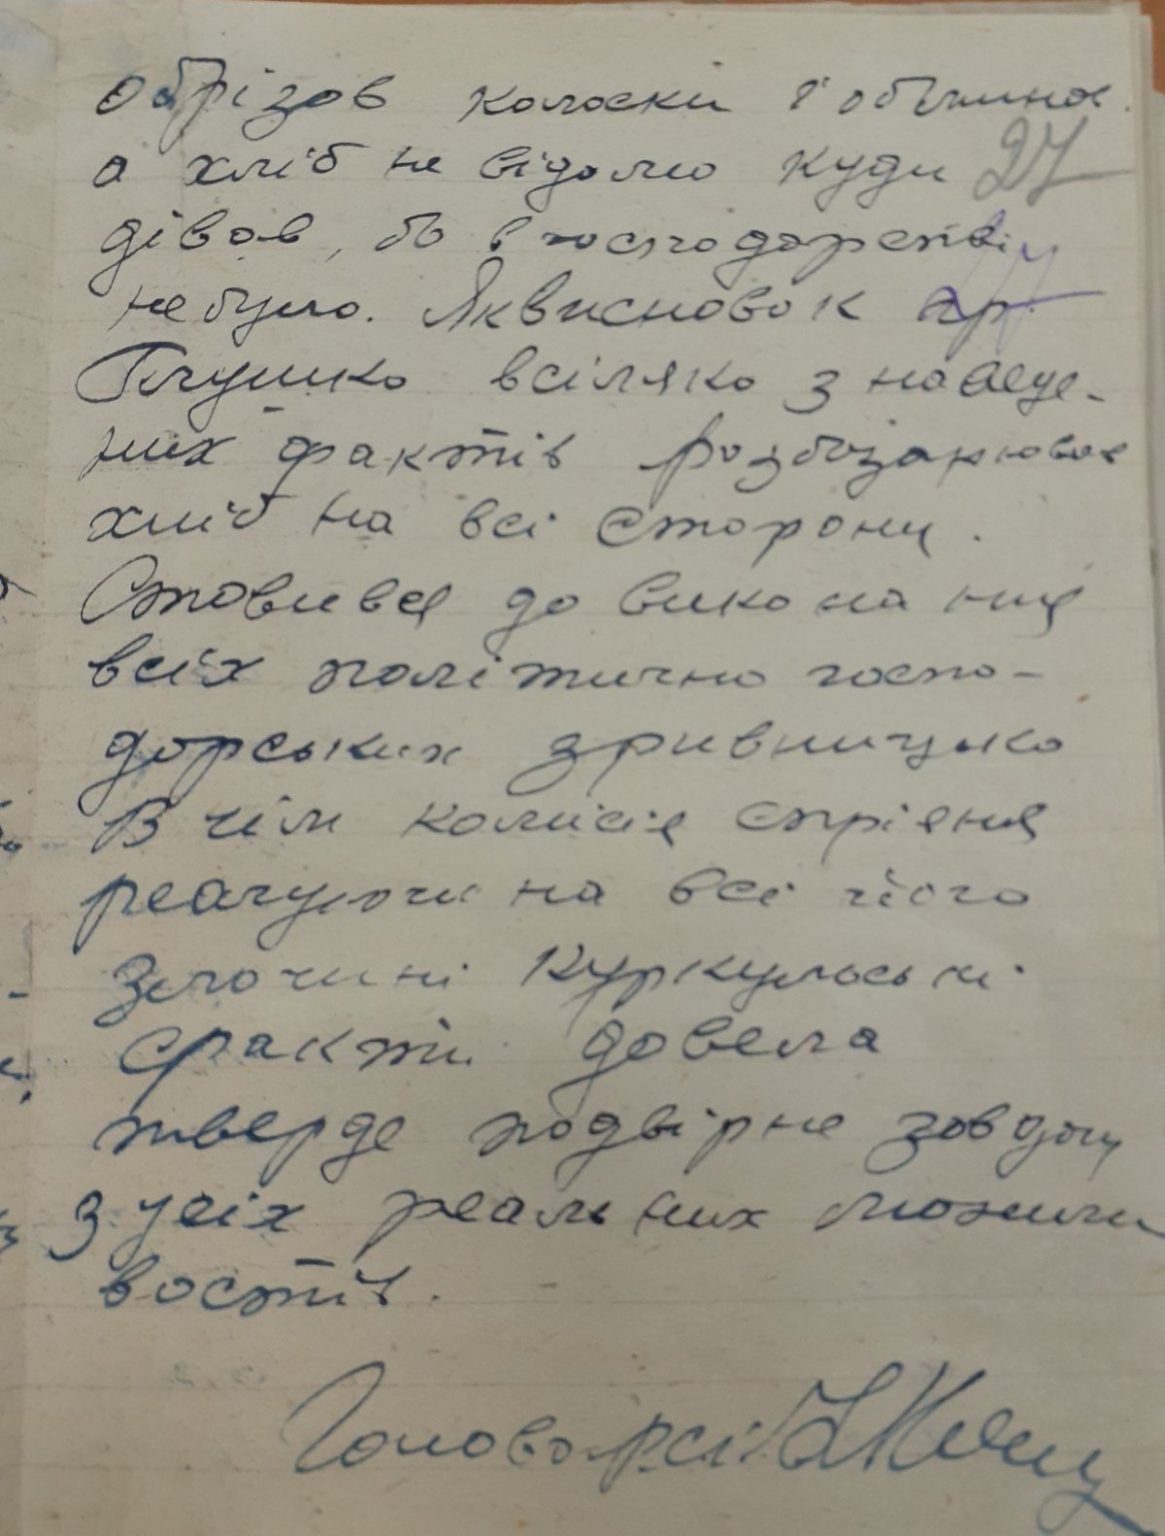 обрізов колоски і обчинос
а хліб не відомо куди 27
дівов, бо в господарстві
не було. Як висновок гр.
Глушко всіляко з наведе-
них фактів розбазарював
хліб на всі сторони.
Стовився до виконання
всіх політично госпо-
дорських зривницько
В чім комісія спріяння
реагуючи на всі його
злочині куркульськи
факти довела
тверде подвірне зовдання
з усіх реальних можли
востів.
Голова р.с.і.